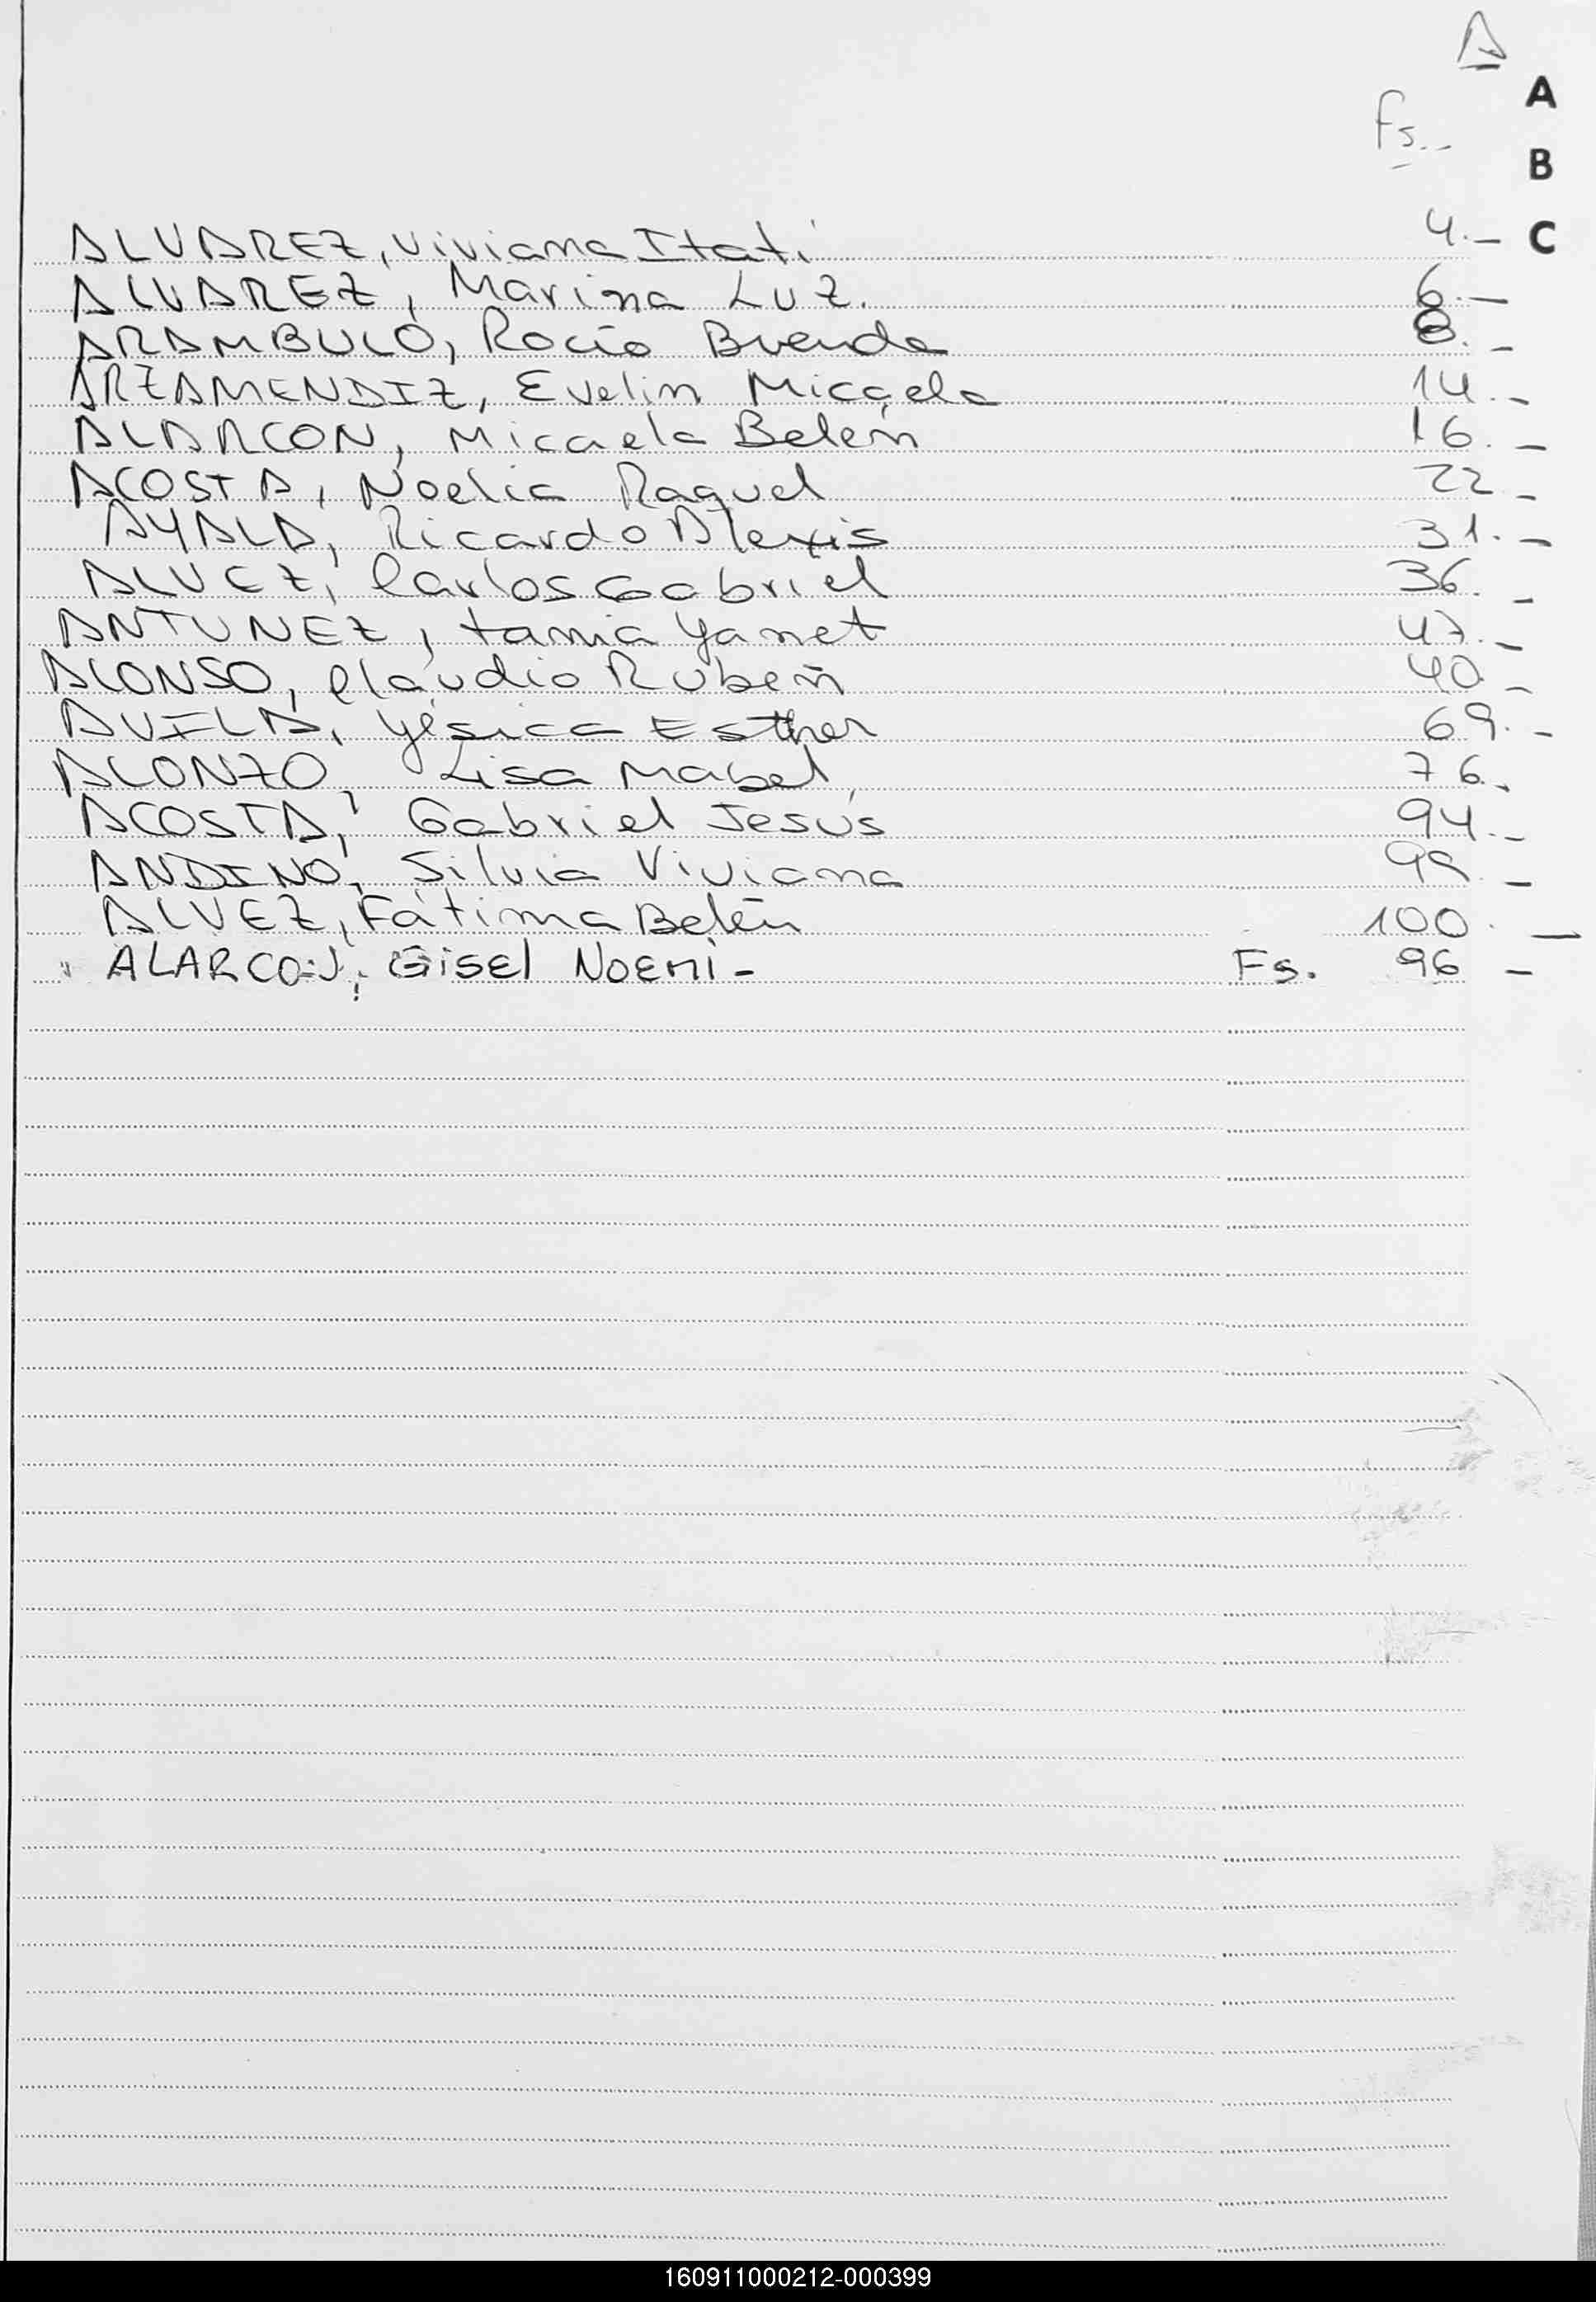 A
A
Fs.-
B
ALVAREZ, Viviana Itatí 4.- C
ALVAREZ, Marina Luz. 6.-
ARAMBULO, Rocío Brenda 8.-
ARZAMENDIZ, Evelin Micaela 14.-
ALARCON, Micaela Belén 16.-
ACOSTA, Noelia Raquel 22.-
AYALA, Ricardo Alexis 31.-
ALVEZ, Carlos Gabriel 36.-
ANTUNEZ, tania Yanet 47.-
ALONSO, Claudio Rubén 40.-
AVILA, Yésica Esther 69.-
ALONZO, Lisa Mabel 76.-
ACOSTA, Gabriel Jesús 94.-
ANDINO, Silvia Viviana -
ALVEZ, Fátima Belén 100.-
ALARCON, Gisel Noemi - Fs. 96 -
160911000212-000399